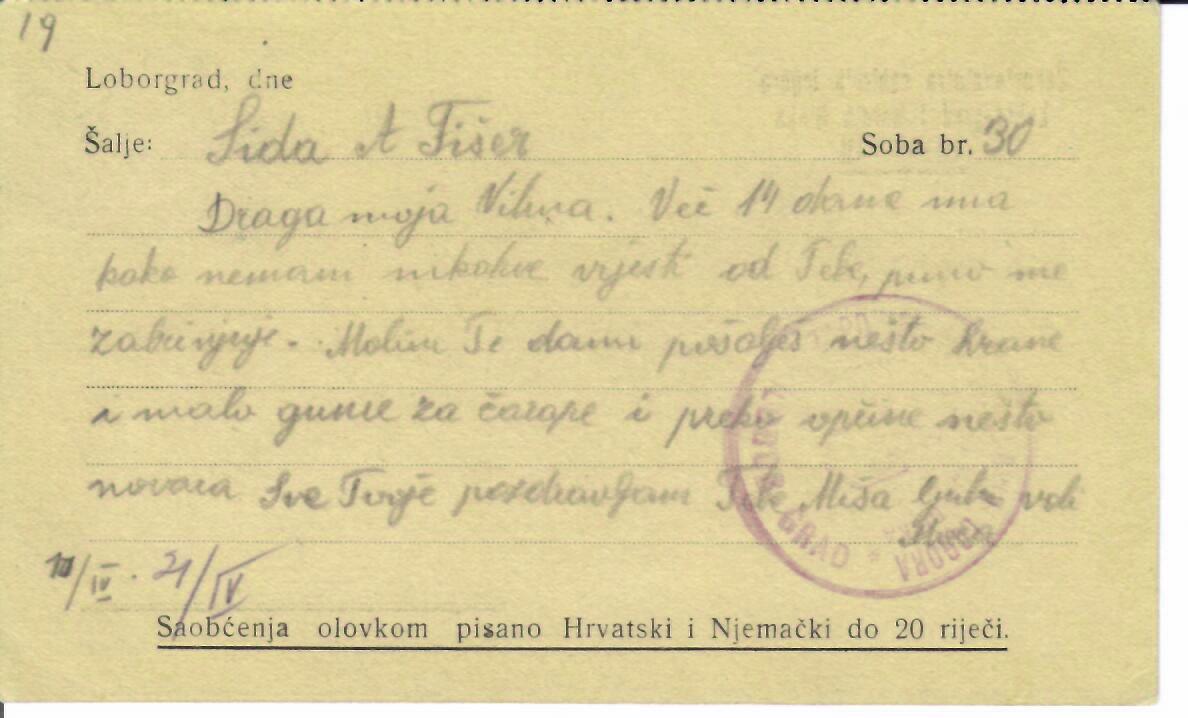 19
Loborgrad, dne
Šalje: Sida A Fišer Soba br. 30
Draga moja Vilma. Već 14 dane ima
kako nemam nikakve vijesti od Tebe, puno me
zabrinjuje. Molim Te dami pošalješ nešto hrane
i malo gume za čarape i preko općine nešto
novaca Sve Tvoje pozdravljam Tebe Miša ljubi voli
/IV. 21/IV
GRAD * BORA
Saobćenja olovkom pisano Hrvatski i Njemački do 20 riječi.